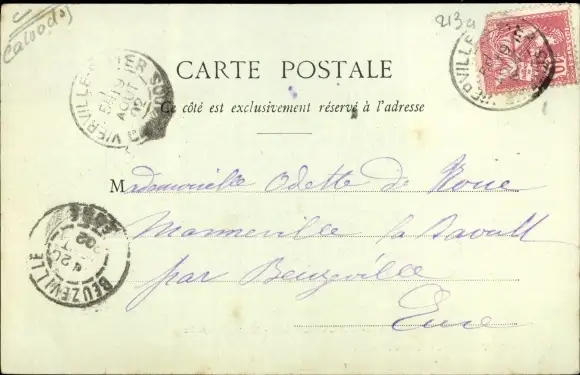 C
Calvados)
213a
CARTE POSTALE
Ce côté est exclusivement réservé à l'adresse
VIERVILLE
19
AOUT
02
VIERVILLE
19
Mademoiselle Odette de
Manneville la Raoult
par Beuzeville
Eure
BEUZEVILLE
EURE
02